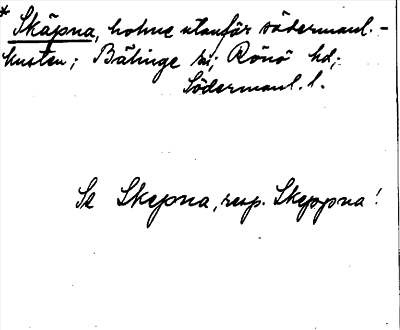 * Skäpna, holme utanför södermanl.-
kusten; Bälinge sn; Rönö hd;
Södermanl. l.
Se Skepna, resp. Skeppna!